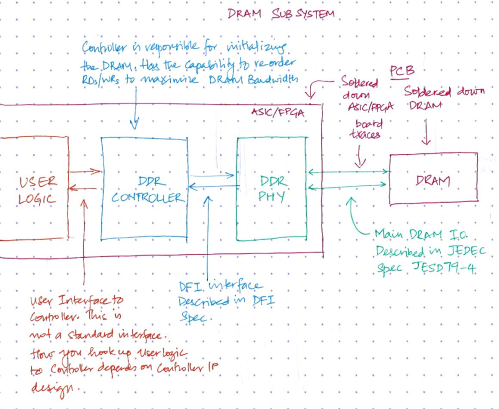 DRAM SUBSYSTEM
Controller is responsible for initializing
the DRAM, Has the capability to re-order
RDs/WRs to maximise DRAM Bandwidth
PCB
Soldered
down
ASIC/FPGA
Soldered down
DRAM
board
traces
ASIC/FPGA
USER
LOGIC
DDR
CONTROLLER
DDR
PHY
DRAM
Main DRAM I.C.
Described in JEDEC
Spec JESD79-4
DFI interface
Described in DFI
Spec.
User Interface to
Controller. This is
not a standard interface.
How you hook up User logic
to Controller depends on Controller IP
design.